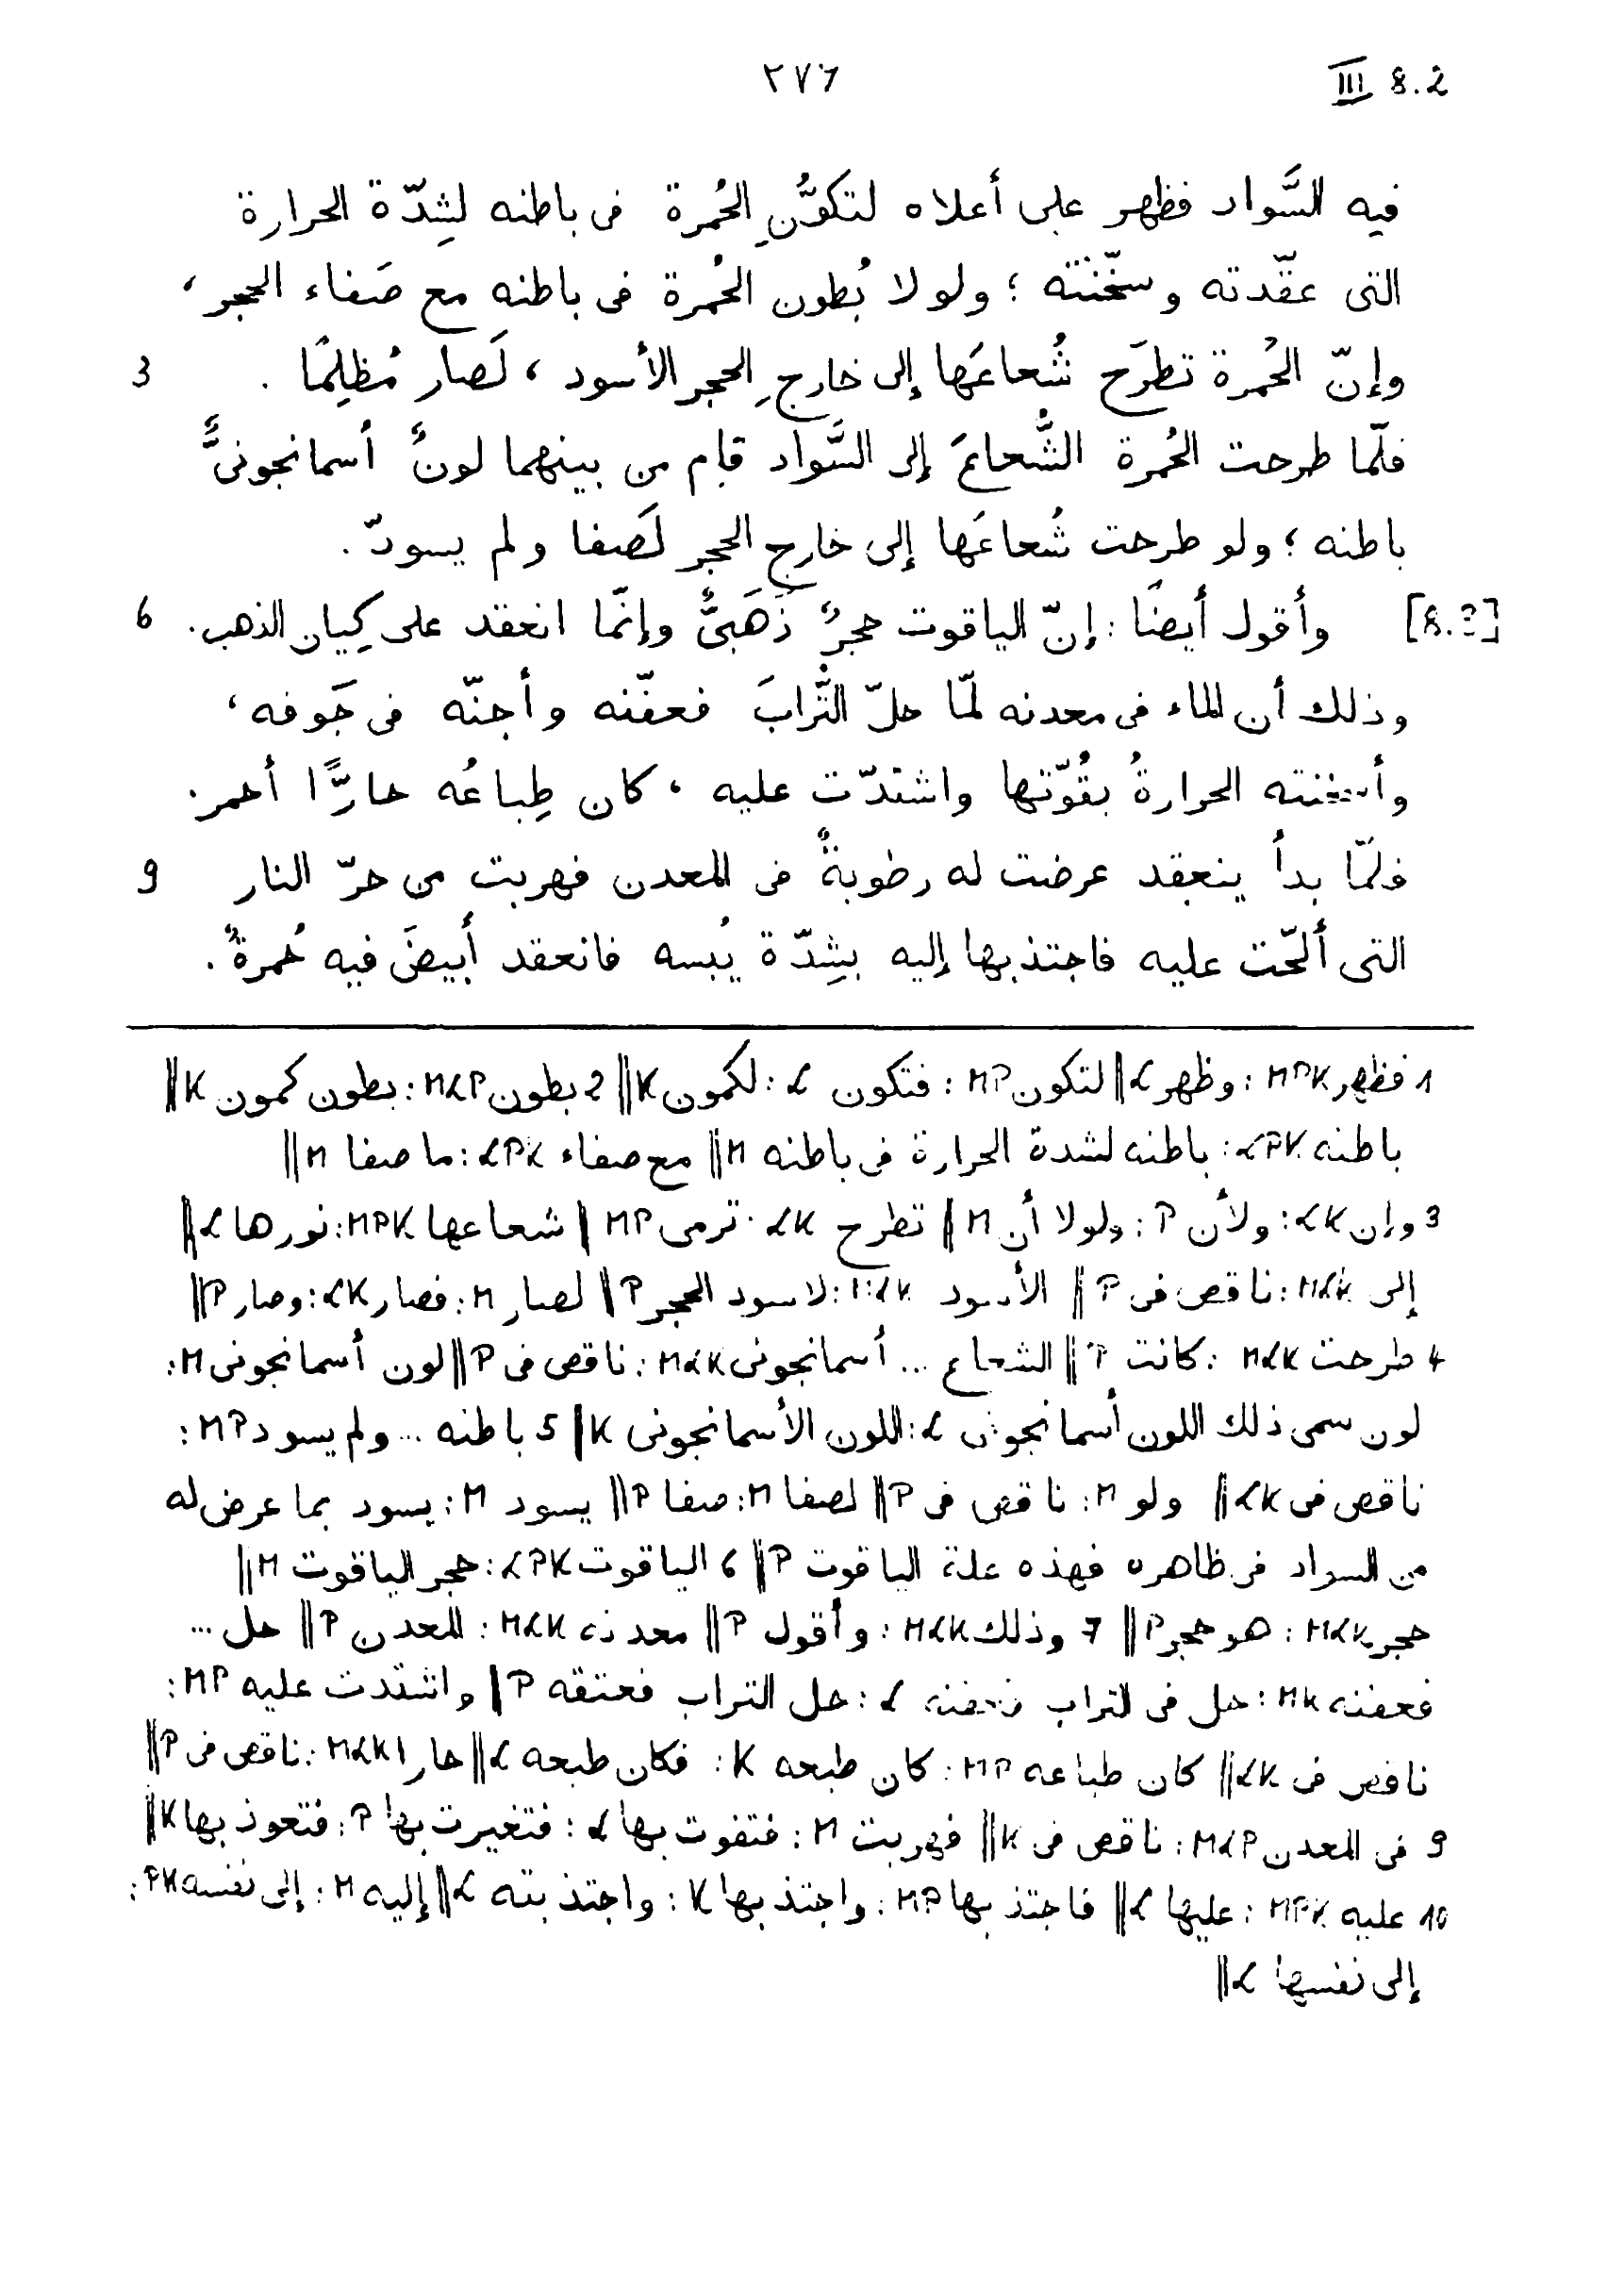 III 8.2
٢٧٦
فيه السَّواد فظهر على أعلاه لتكوُّنِ الحُمرة فى باطنه لشِدّة الحرارة
التى عقّدته وسخّنته ؛ ولو لا بُطون الحُمرة فى باطنه مع صَفاء الحجر ،
3 وإنّ الحُمرة تطرَح شُعاعَها إلى خارجِ الحجر الأسود ، لَصار مُظلِمًا .
فلمّا طرحت الحُمرة الشُّعاعَ إلى السَّواد قام من بينهما لونٌ أسمانجونىٌّ
باطنه ؛ ولو طرحت شُعاعَها إلى خارج الحجر لَصفا ولم يسودّ .
6 وأقول أيضًا : إنّ الياقوت حجرٌ ذَهَبىٌّ وإنّما انعقد على كِيان الذهب .
وذلك أن الماء فى معدنه لمّا حلّ التُّرابَ فعفّنه وأجنّه فى جَوفه ،
وأسخنته الحرارةُ بقُوّتها واشتدّت عليه ، كان طِباعُه حارًّا أحمر .
9 فلمّا بدأ ينعقد عرضت له رطوبةٌ فى المعدن فهربت من حرّ النار
التى ألحّت عليه فاجتذبها إليه بشِدّة يُبسه فانعقد أبيضَ فيه حُمرةٌ .
1 فظهر MPK : وظهر L || لتكون MP : فتكون L : لكمون K || 2 بطون MLP : بطون كمون K ||
باطنه LPK : باطنه لشدة الحرارة فى باطنه M || مع صفاء LPK : ما صفا M ||
3 وإن LK : ولأن P : ولولا أن M || تطرح LK : ترمى MP || شعاعها MPK : نورها L ||
إلى MLK : ناقص فى P || الأسود MLK : لاسود الحجر P || لصار M : فصار LK : وصار P ||
4 طرحت MLK : كانت P || الشعاع ... أسمانجونى MLK : ناقص فى P || لون أسمانجونى M :
لون سمى ذلك اللون أسمانجونى L : اللون الأسمانجونى K || 5 باطنه ... ولم يسود MP :
ناقص فى LK || ولو M : ناقص فى P || لصفا M : صفا P || يسود M : يسود بما عرض له
من السواد فى ظاهره فهذه علة الياقوت P || 6 الياقوت LPK : حجر الياقوت M ||
حجر MLK : هو حجر P || 7 وذلك MLK : وأقول P || معدنه MLK : المعدن P || حل ...
فعفنه MK : حل فى التراب فعفنه L : حل التراب فعتقه P || واشتدت عليه MP :
ناقص فى LK || كان طباعه MP : كان طبعه K : فكان طبعه L || حارا MLK : ناقص فى P ||
9 فى المعدن MLP : ناقص فى K || فهربت M : فتفوت بها L : فتغيرت بها P : فتعوذ بها K ||
10 عليه MPK : عليها L || فاجتذبها MP : واجتذبها K : واجتذبته L || إليه M : إلى نفسه PK :
إلى نفسها L ||